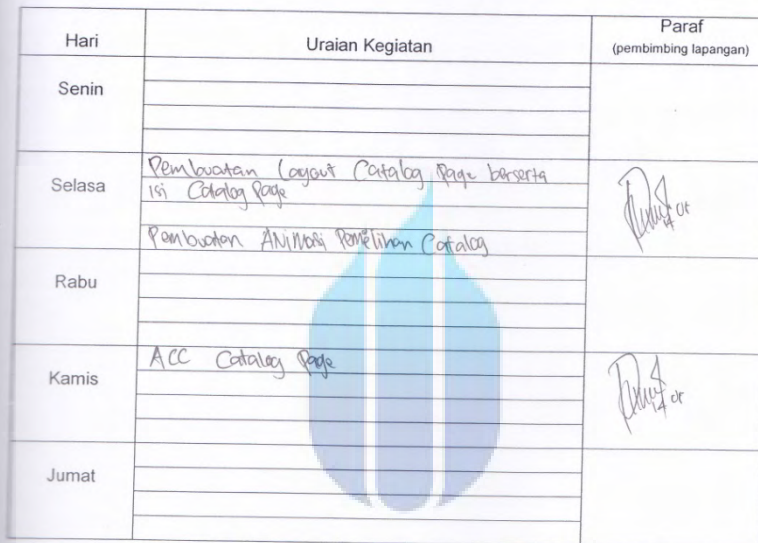 Hari Uraian Kegiatan Paraf
(pembimbing lapangan)
Senin
Pembuatan Layout Catalog Page berserta
Selasa
isi Catalog Page
Pembuatan ANiMasi Pemelihan Catalog
Rabu
ACC Catalog Page
Kamis
Jumat